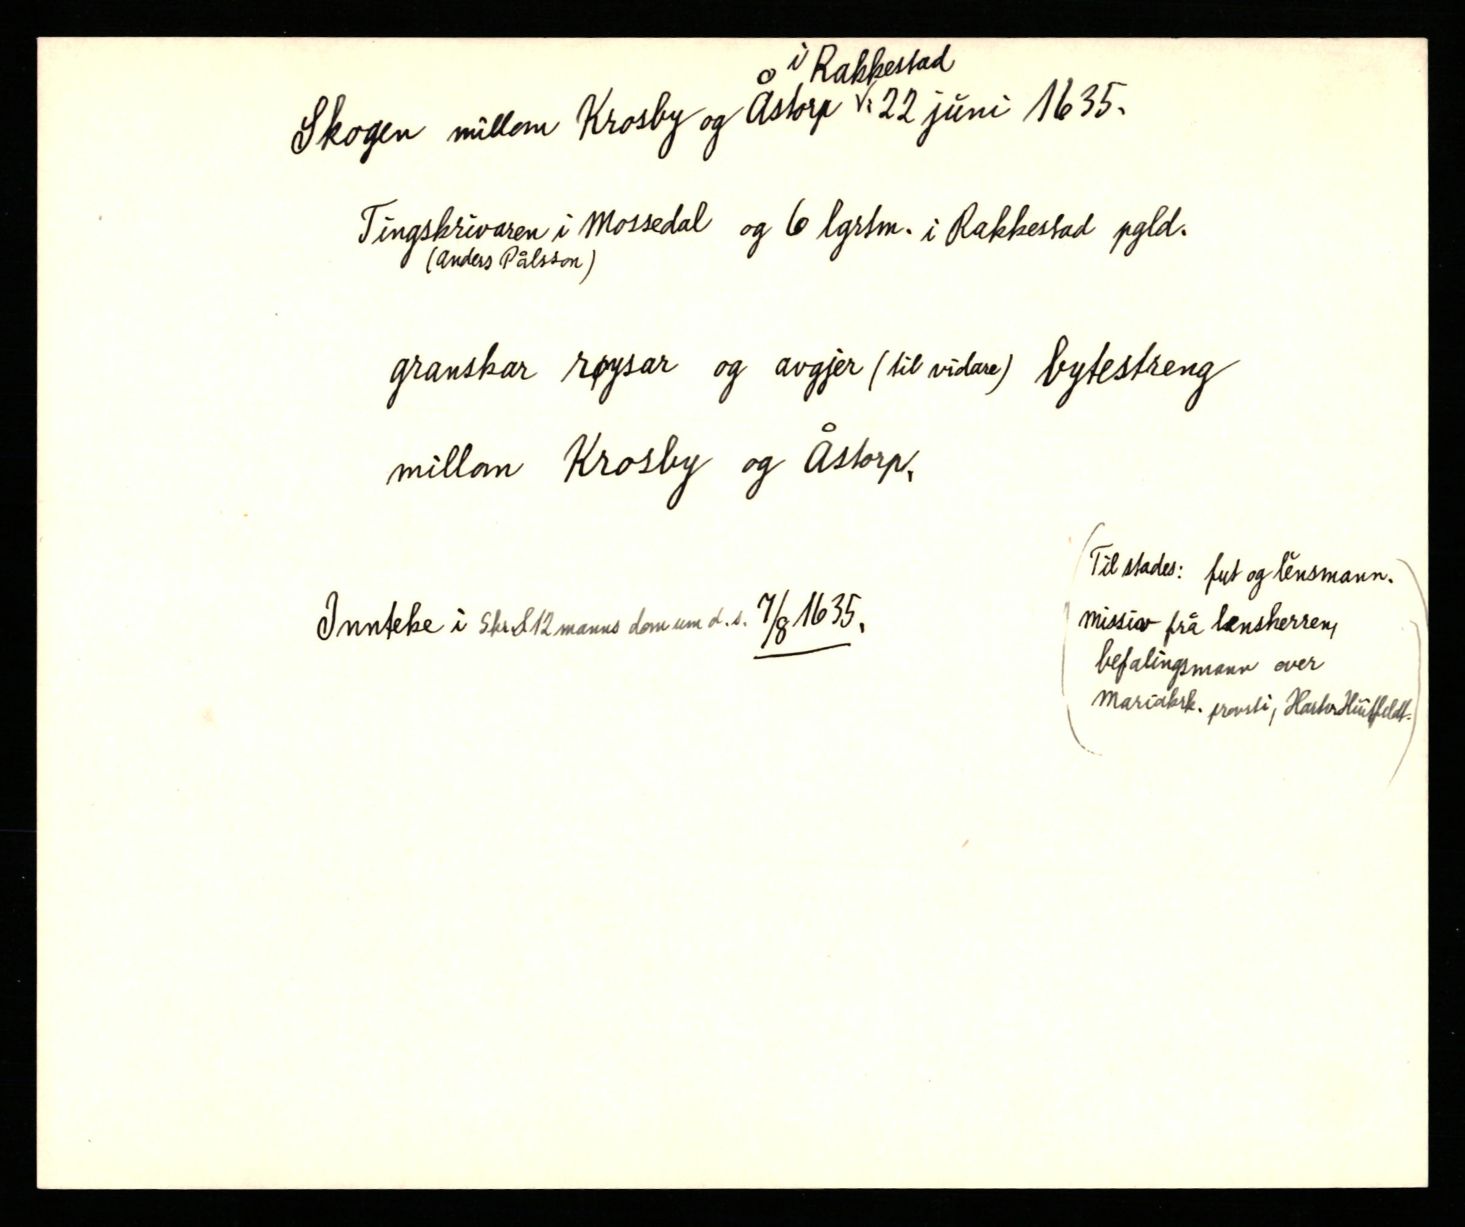 i Rakkestad
Skogen millom Krosby og Åstorp 22 juni 1635.
Tingskrivaren i Mossedal og 6 lgrtm. i Rakkestad pgld.
(Anders Pålsson)
granskar røysar og avgjer (til vidare) bytestreng
millom Krosby og Åstorp.
Innteke i 12 manns dom um d. s. 7/8 1635.
(Til stades: fut og lensmann.
Missiv frå lensherren,
befalingsmann over
Mariakrk. provsti, Huitfeldt.)